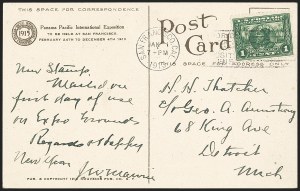 THIS SPACE FOR CORRESPONDENCE
Panama Pacific International Exposition
TO BE HELD AT SAN FRANCISCO,
FEBRUARY 20TH TO DECEMBER 4TH 1915
1915
New Stamp
Mailed on
first day of use
on Expo Grounds
Regards & Happy
New Year
Post
Card
SAN FRAN
JAN 1
-PM
THIS SPACE FOR ADDRESS ONLY
1
H. H. Thatcher
c/o Geo. A. Armstrong
68 King Ave
Detroit
Mich